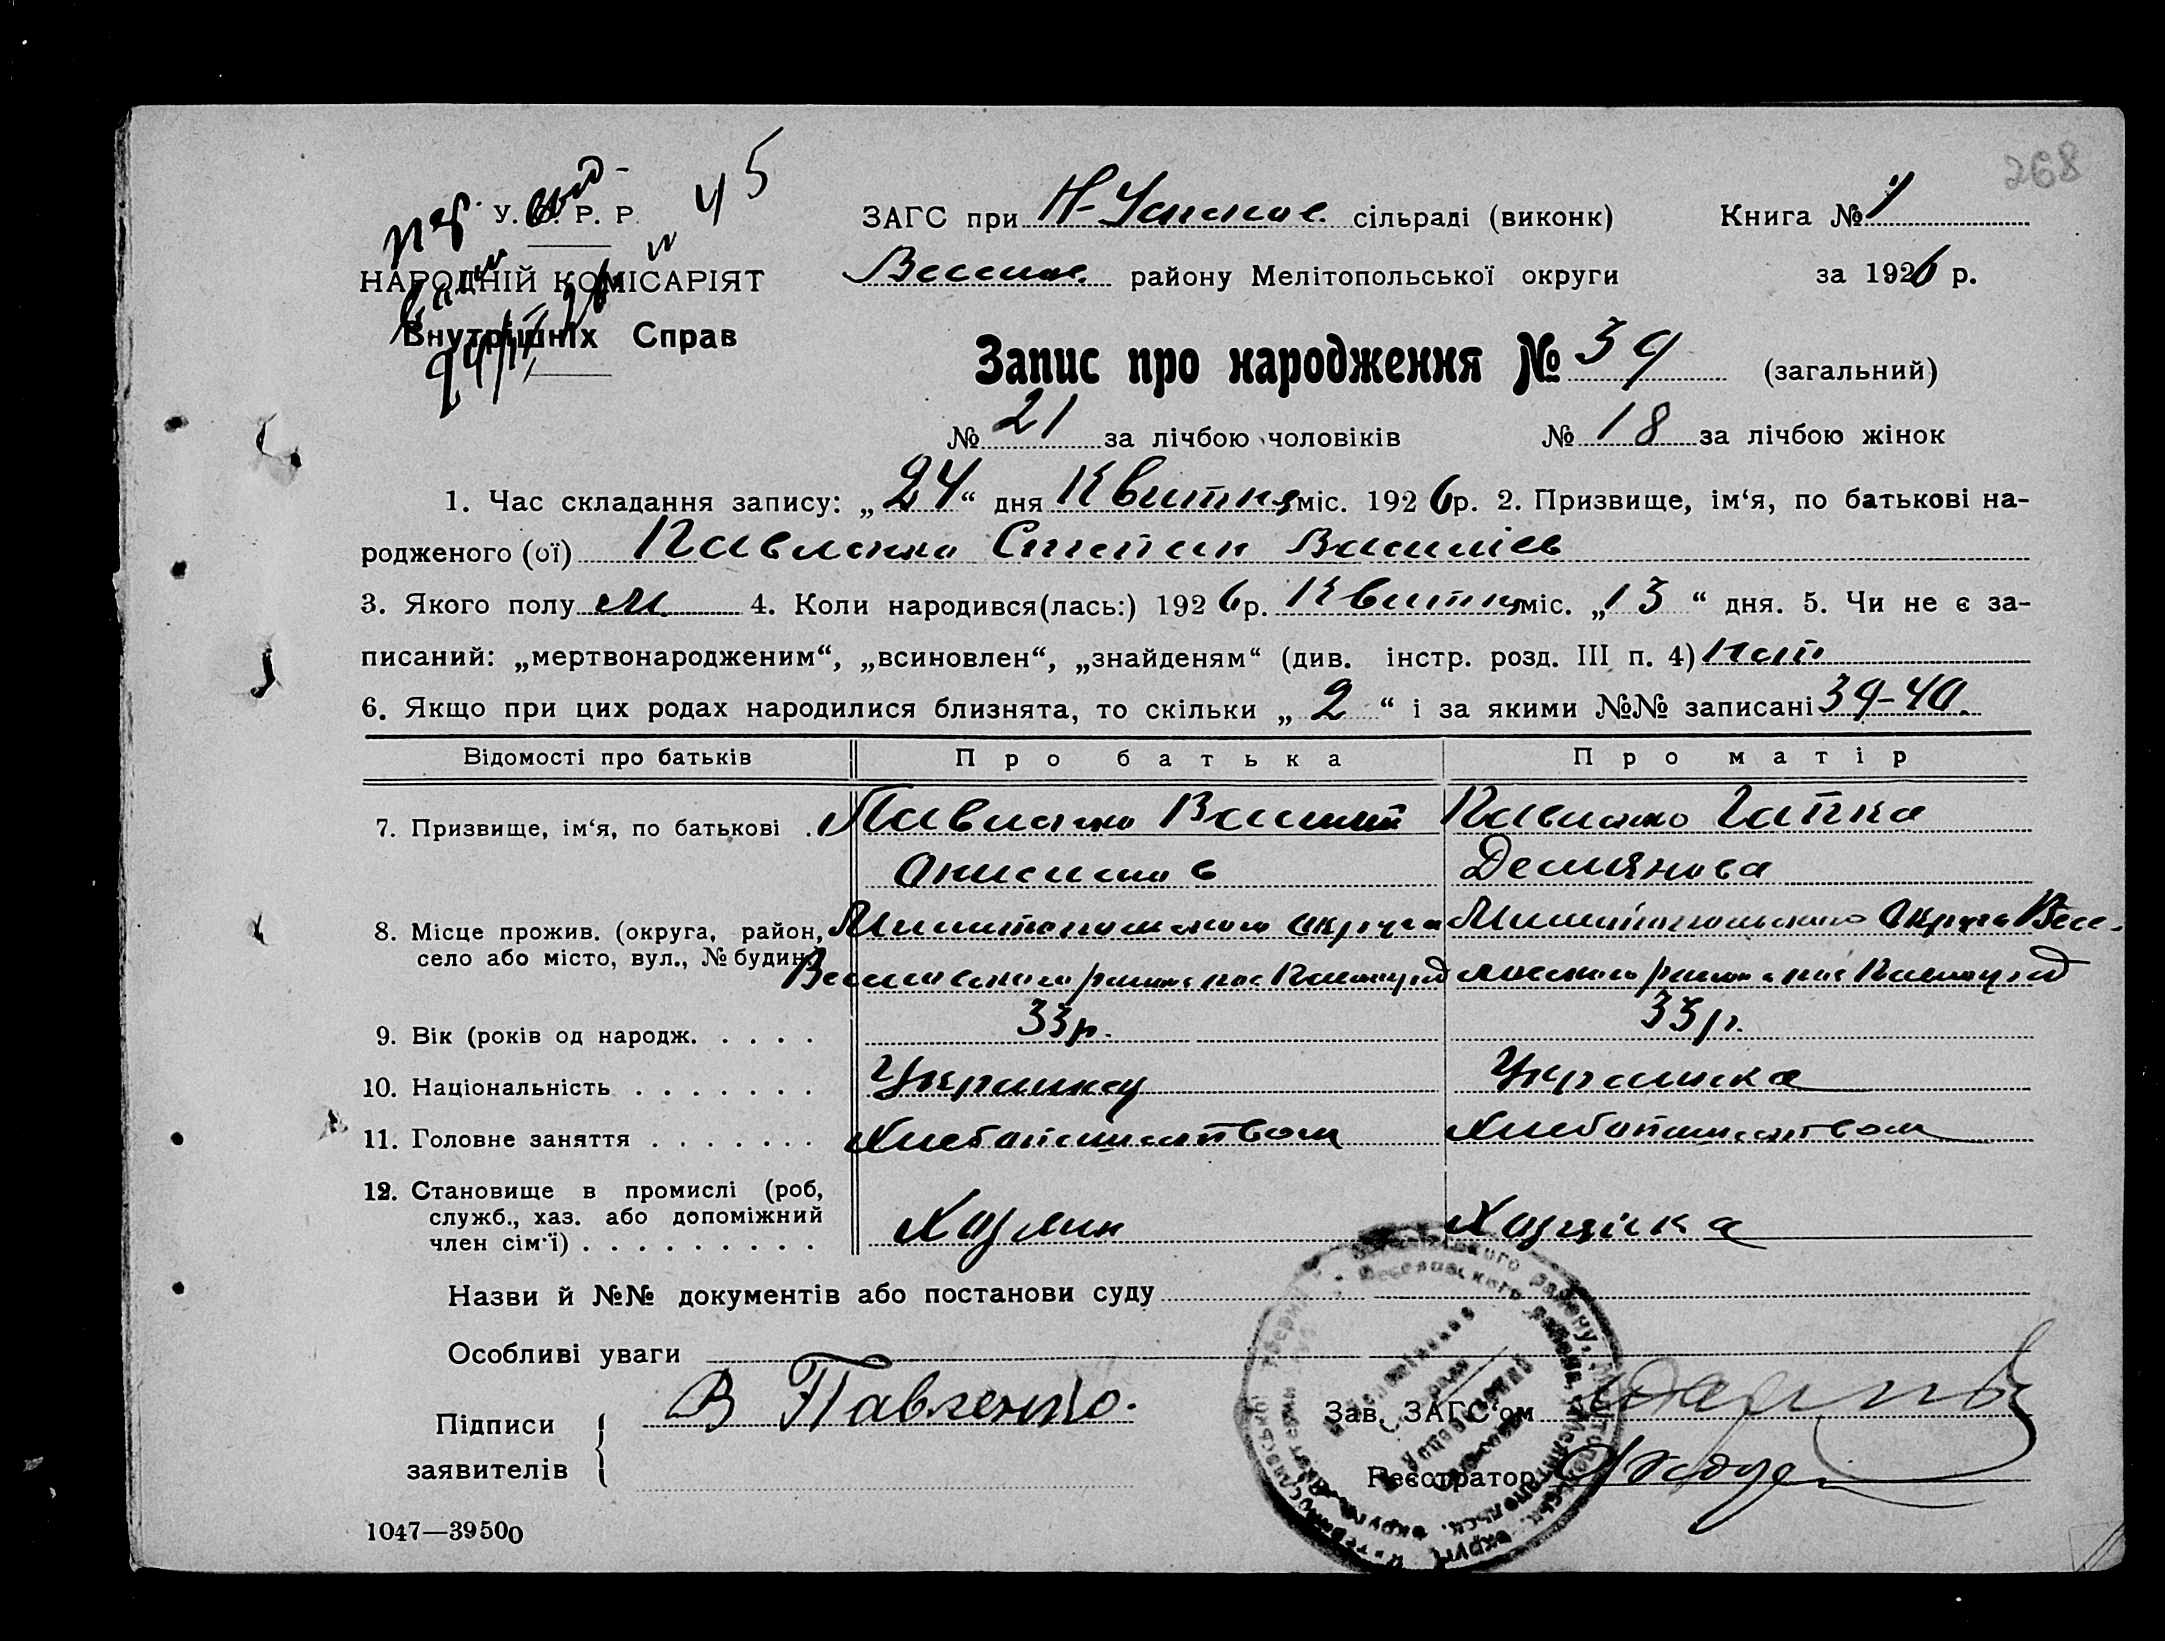 268
45
У. С. Р. Р.
НАРОДНІЙ КОМІСАРІЯТ
Внутрішніх Справ
ЗАГС при Н-Успенск. сільраді (виконк) Книга № 1
Весел. району Мелітопольської округи за 1926 р.
Запис про народження № 39 (загальний)
№ 21 за лічбою чоловіків № 18 за лічбою жінок
1. Час складання запису: „24“ дня Квитня міс. 1926 р. 2. Призвище, ім‘я, по батькові на-
родженого (ої) Павленко Степан Василіев
3. Якого полу м. 4. Коли народився(лась:) 1926 р. Квитня міс. „13“ дня. 5. Чи не є за-
писаний: „мертвонародженим“, „всиновлен“, „знайденям“ (див. інстр. розд. III п. 4)
6. Якщо при цих родах народилися близнята, то скільки „2“ і за якими №№ записані 39-40.
Відомості про батьків Про батька Про матір
7. Призвище, ім‘я, по батькові . Павленко Василий Павленко Гапка
Анисимов Демянова
8. Місце прожив. (округа, район, Милитопольского округа Милитопольского Округа Весе-
село або місто, вул., № будин.) Веселовского района пос лövского района пос
9. Вік (років од народж. . . . . 33р. 33р.
10. Національність . . . . . . . Украинец Украинка
11. Головне заняття . . . . . . . Хлебопашеством Хлебопашеством
12. Становище в промислі (роб,
служб., хаз. або допоміжний
член сім‘ї) . . . . . . . . . Хозяин Хозяйка
Назви й №№ документів або постанови суду
Особливі уваги
Підписи
заявителів
В Павленко.
Зав. ЗАГС‘ом
Реєстратор
1047—39500